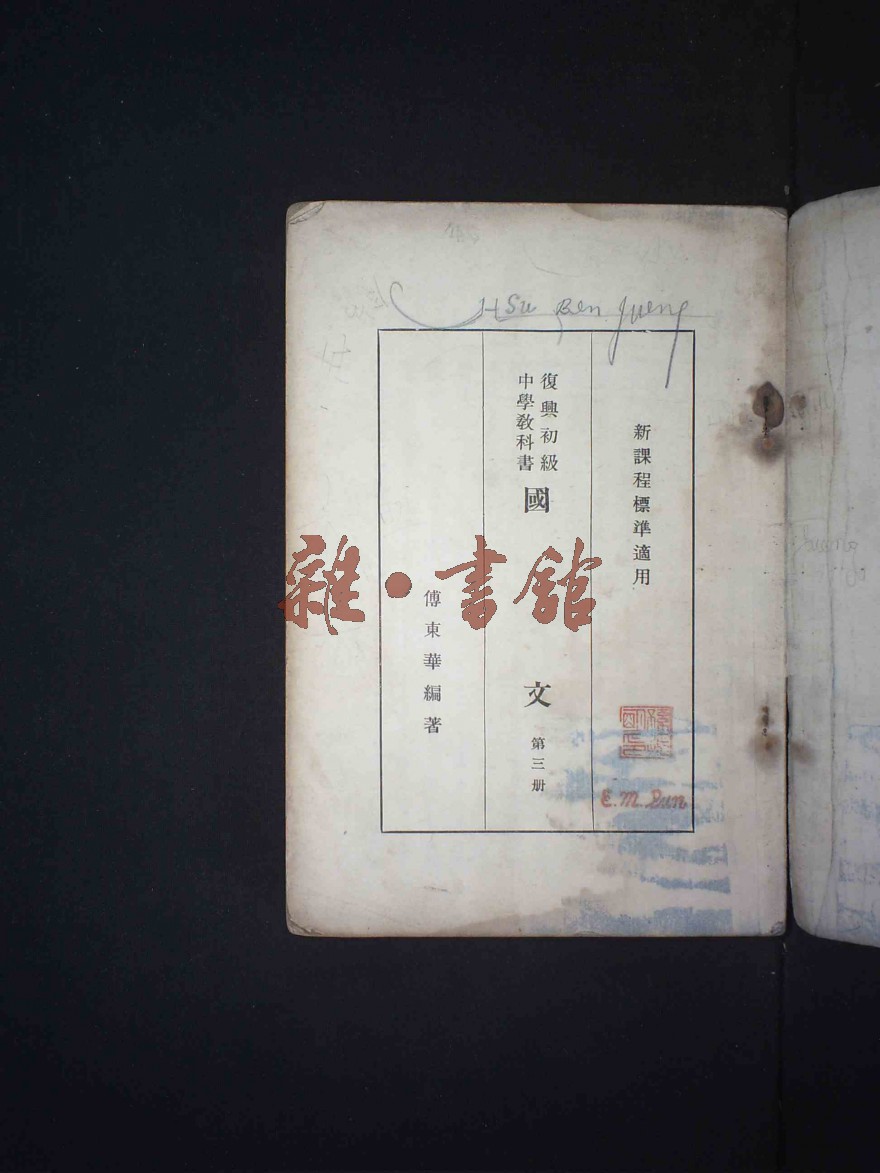 Hsu Ben Jueng
新課程標準適用
復興初級
中學教科書
國文
第三册
傅東華編著
雜·書館
E. M. Sun